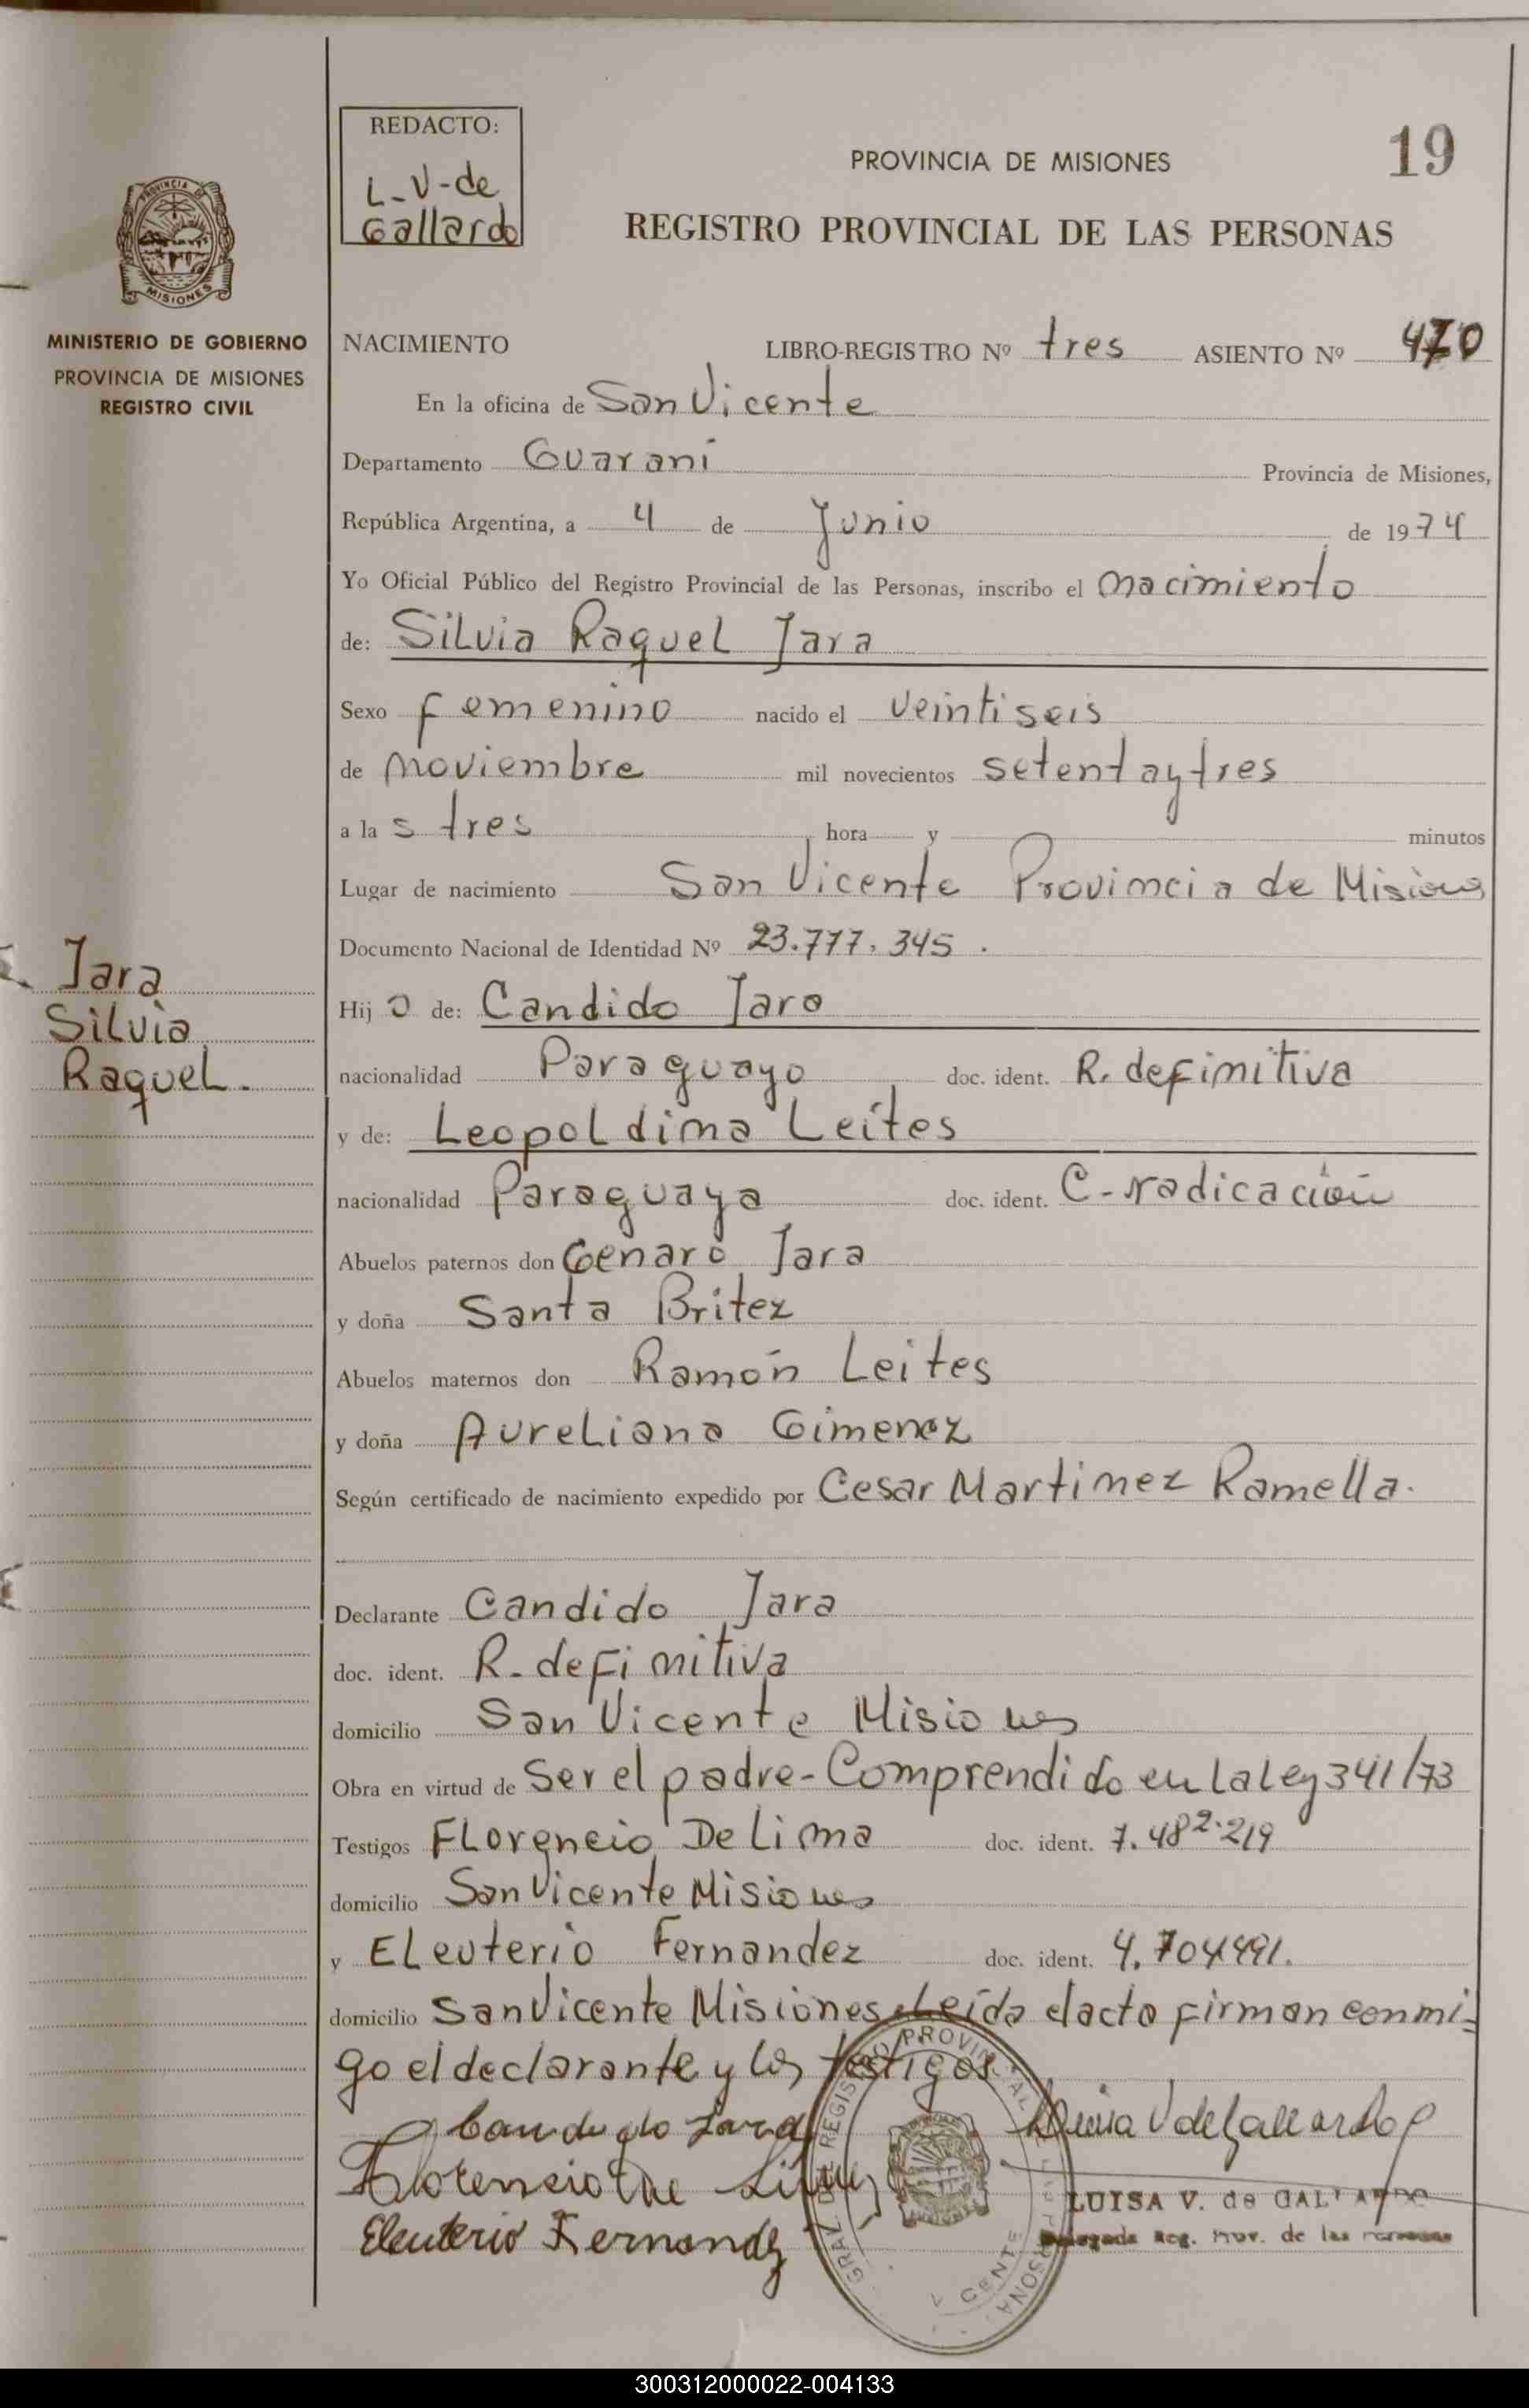 REDACTO:
L-V-de
Gallardo
PROVINCIA DE MISIONES
19
REGISTRO PROVINCIAL DE LAS PERSONAS
PROVINCIA DE
MISIONES
MINISTERIO DE GOBIERNO
PROVINCIA DE MISIONES
REGISTRO CIVIL
NACIMIENTO
LIBRO-REGISTRO Nº tres ASIENTO Nº 470
En la oficina de San Vicente
Departamento Guarani Provincia de Misiones,
República Argentina, a 4 de Junio de 1974
Yo Oficial Público del Registro Provincial de las Personas, inscribo el nacimiento
de: Silvia Raquel Jara
Sexo Femenino nacido el veintiseis
de noviembre mil novecientos setentaytres
a la s tres hora y minutos
Lugar de nacimiento San Vicente Provincia de Misiones
Documento Nacional de Identidad Nº 23.777.345.
Jara
Silvia
Raquel.
Hij a de: Candido Jara
nacionalidad Paraguayo doc. ident. R. definitiva
y de: Leopoldina Leites
nacionalidad Paraguaya doc. ident. C-radicación
Abuelos paternos don Genaro Jara
y doña Santa Britez
Abuelos maternos don Ramón Leites
y doña Aureliana Gimenez
Según certificado de nacimiento expedido por Cesar Martinez Ramella.
Declarante Candido Jara
doc. ident. R-definitiva
domicilio San Vicente Misiones
Obra en virtud de Ser el padre-Comprendido en la Ley 341/73
Testigos Florencio De Lima doc. ident. 7.482.219
domicilio San Vicente Misiones
y Eleuterio Fernandez doc. ident. 4.704491.
domicilio San Vicente Misiones Leida elacta firman conmi-
go el declarante y los testigos
Candido Jara
Luisa V de Gallardo
Florencio De Lima
Eleuterio Fernandez
LUISA V. de GALLARDO
Delegada Reg. Prov. de las Personas
300312000022-004133